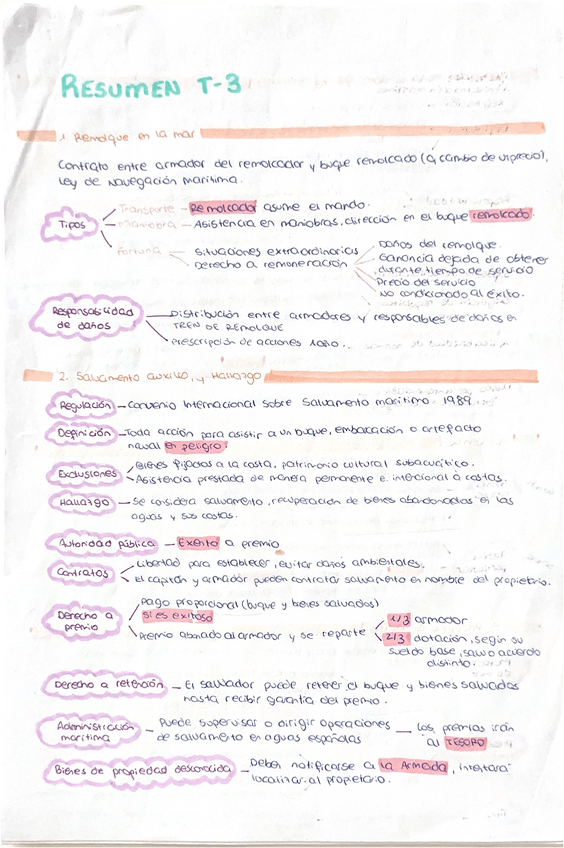 RESUMEN T-3
1. Remolque en la mar
Contrato entre armador del remolcador y buque remolcado (a cambio de un precio),
Ley de Navegación marítima.
Tipos
Transporte - Remolcador asume el mando.
Maniobra - Asistencia en maniobras, dirección en el buque remolcado.
Fortuna - situaciones extraordinarias
Derecho a remoneración
Daños del remolque.
Ganancia dejada de obtener
durante tiempo de servicio
Precio del servicio
No condicionado al éxito.
Responsabilidad
de daños
Distribución entre armadores y responsables de daños en
TREN DE REMOLQUE
Prescripción de acciones 1 año.
2. Salvamento auxilio, y Hallazgo
Regulación - Convenio Internacional sobre Salvamento marítimo. 1989
Definición - Toda acción para asistir a un buque, embarcación o artefacto
naval en peligro.
Exclusiones
Bienes fijados a la costa, patrimonio cultural subacuático.
Asistencia prestada de manera permanente e intencional a costas.
Hallazgo - Se considera salvamento, recuperación de bienes abandonados en las
aguas y sus costas.
Autoridad pública - Exento a premio
Contratos
Libertad para establecer, evitar daños ambientales.
El capitán y armador pueden contratar salvamento en nombre del propietario.
Derecho a
premio
Pago proporcional (buque y bienes salvados)
si es exitoso
Premio abonado al armador y se reparte
1/3 armador
2/3 dotación, según su
sueldo base, salvo acuerdo
distinto.
Derecho a retención - El salvador puede retener el buque y bienes salvados
hasta recibir garantía del premio.
Administración
marítima
Puede supervisar o dirigir operaciones
de salvamento en aguas españolas
Los premios irán
al TESORO
Bienes de propiedad desconocida - Deben notificarse a la Armada, intentará
localizar al propietario.